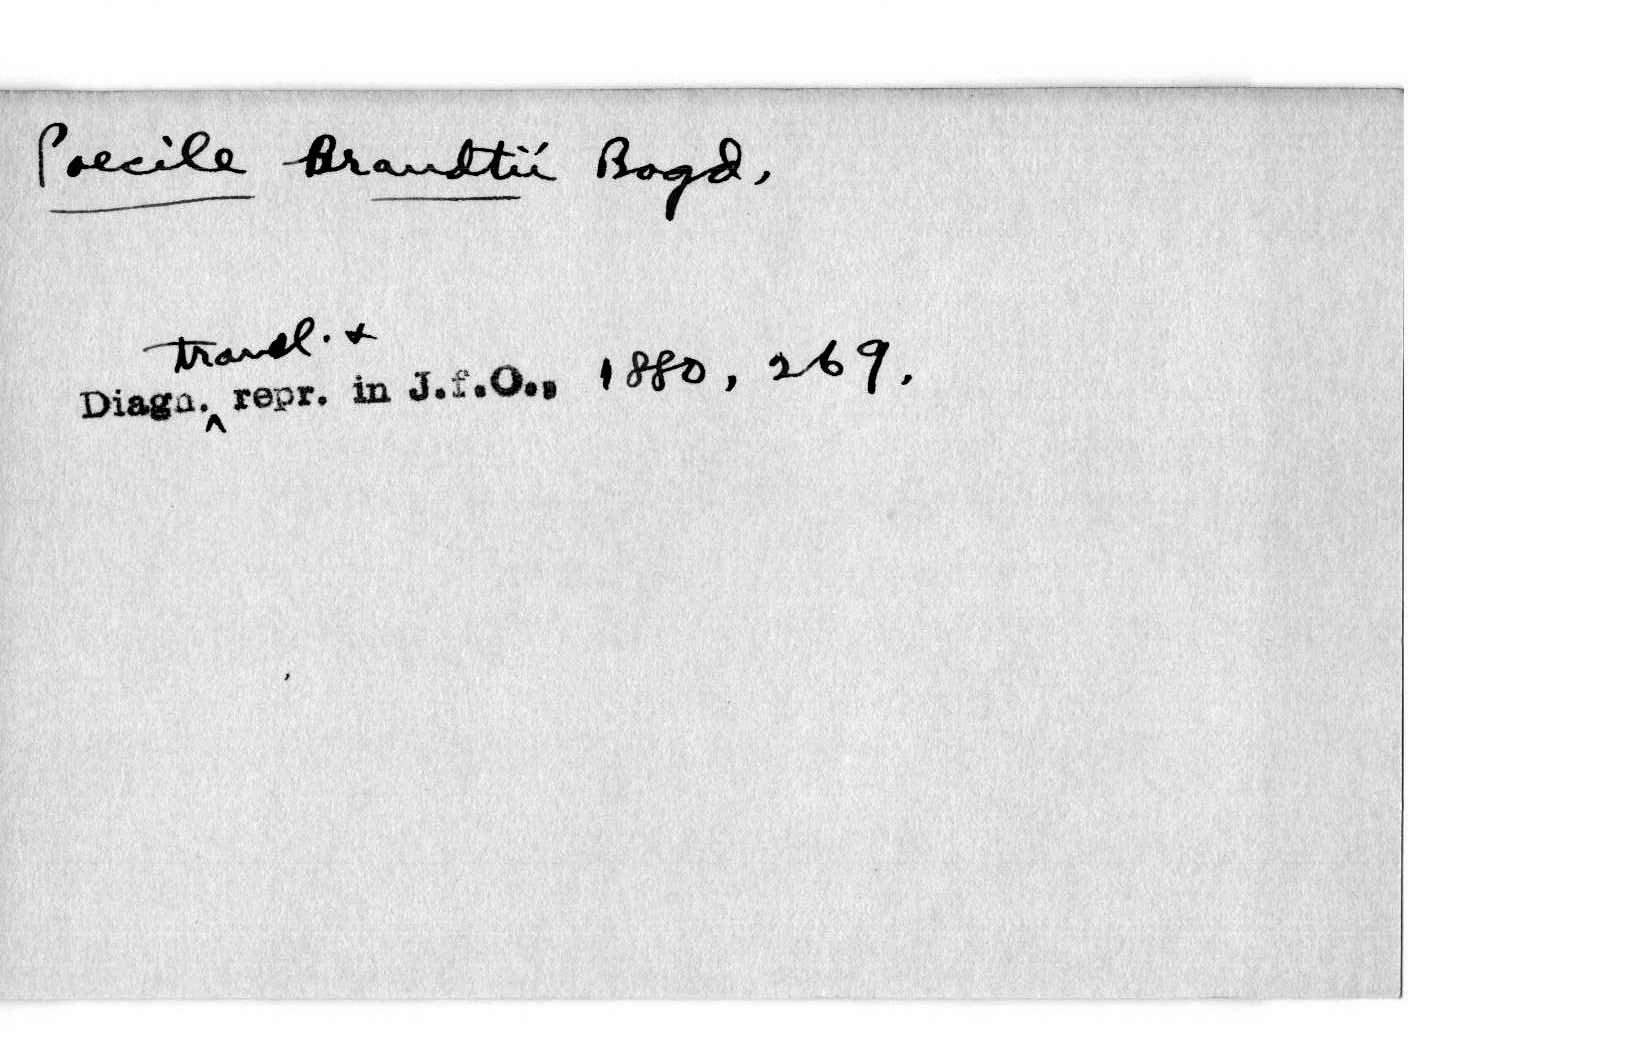 Poecile Brandtii Bogd.
transl. &
Diagn. ^ repr. in J.f.O., 1880, 269.